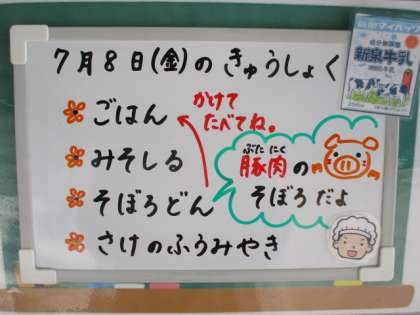 7月8日(金)のきゅうしょく
ごはん
みそしる
そぼろどん
さけのふうみやき
かけて
たべてね。
ぶたにく
豚肉の
そぼろだよ
成分無調整
新泉牛乳